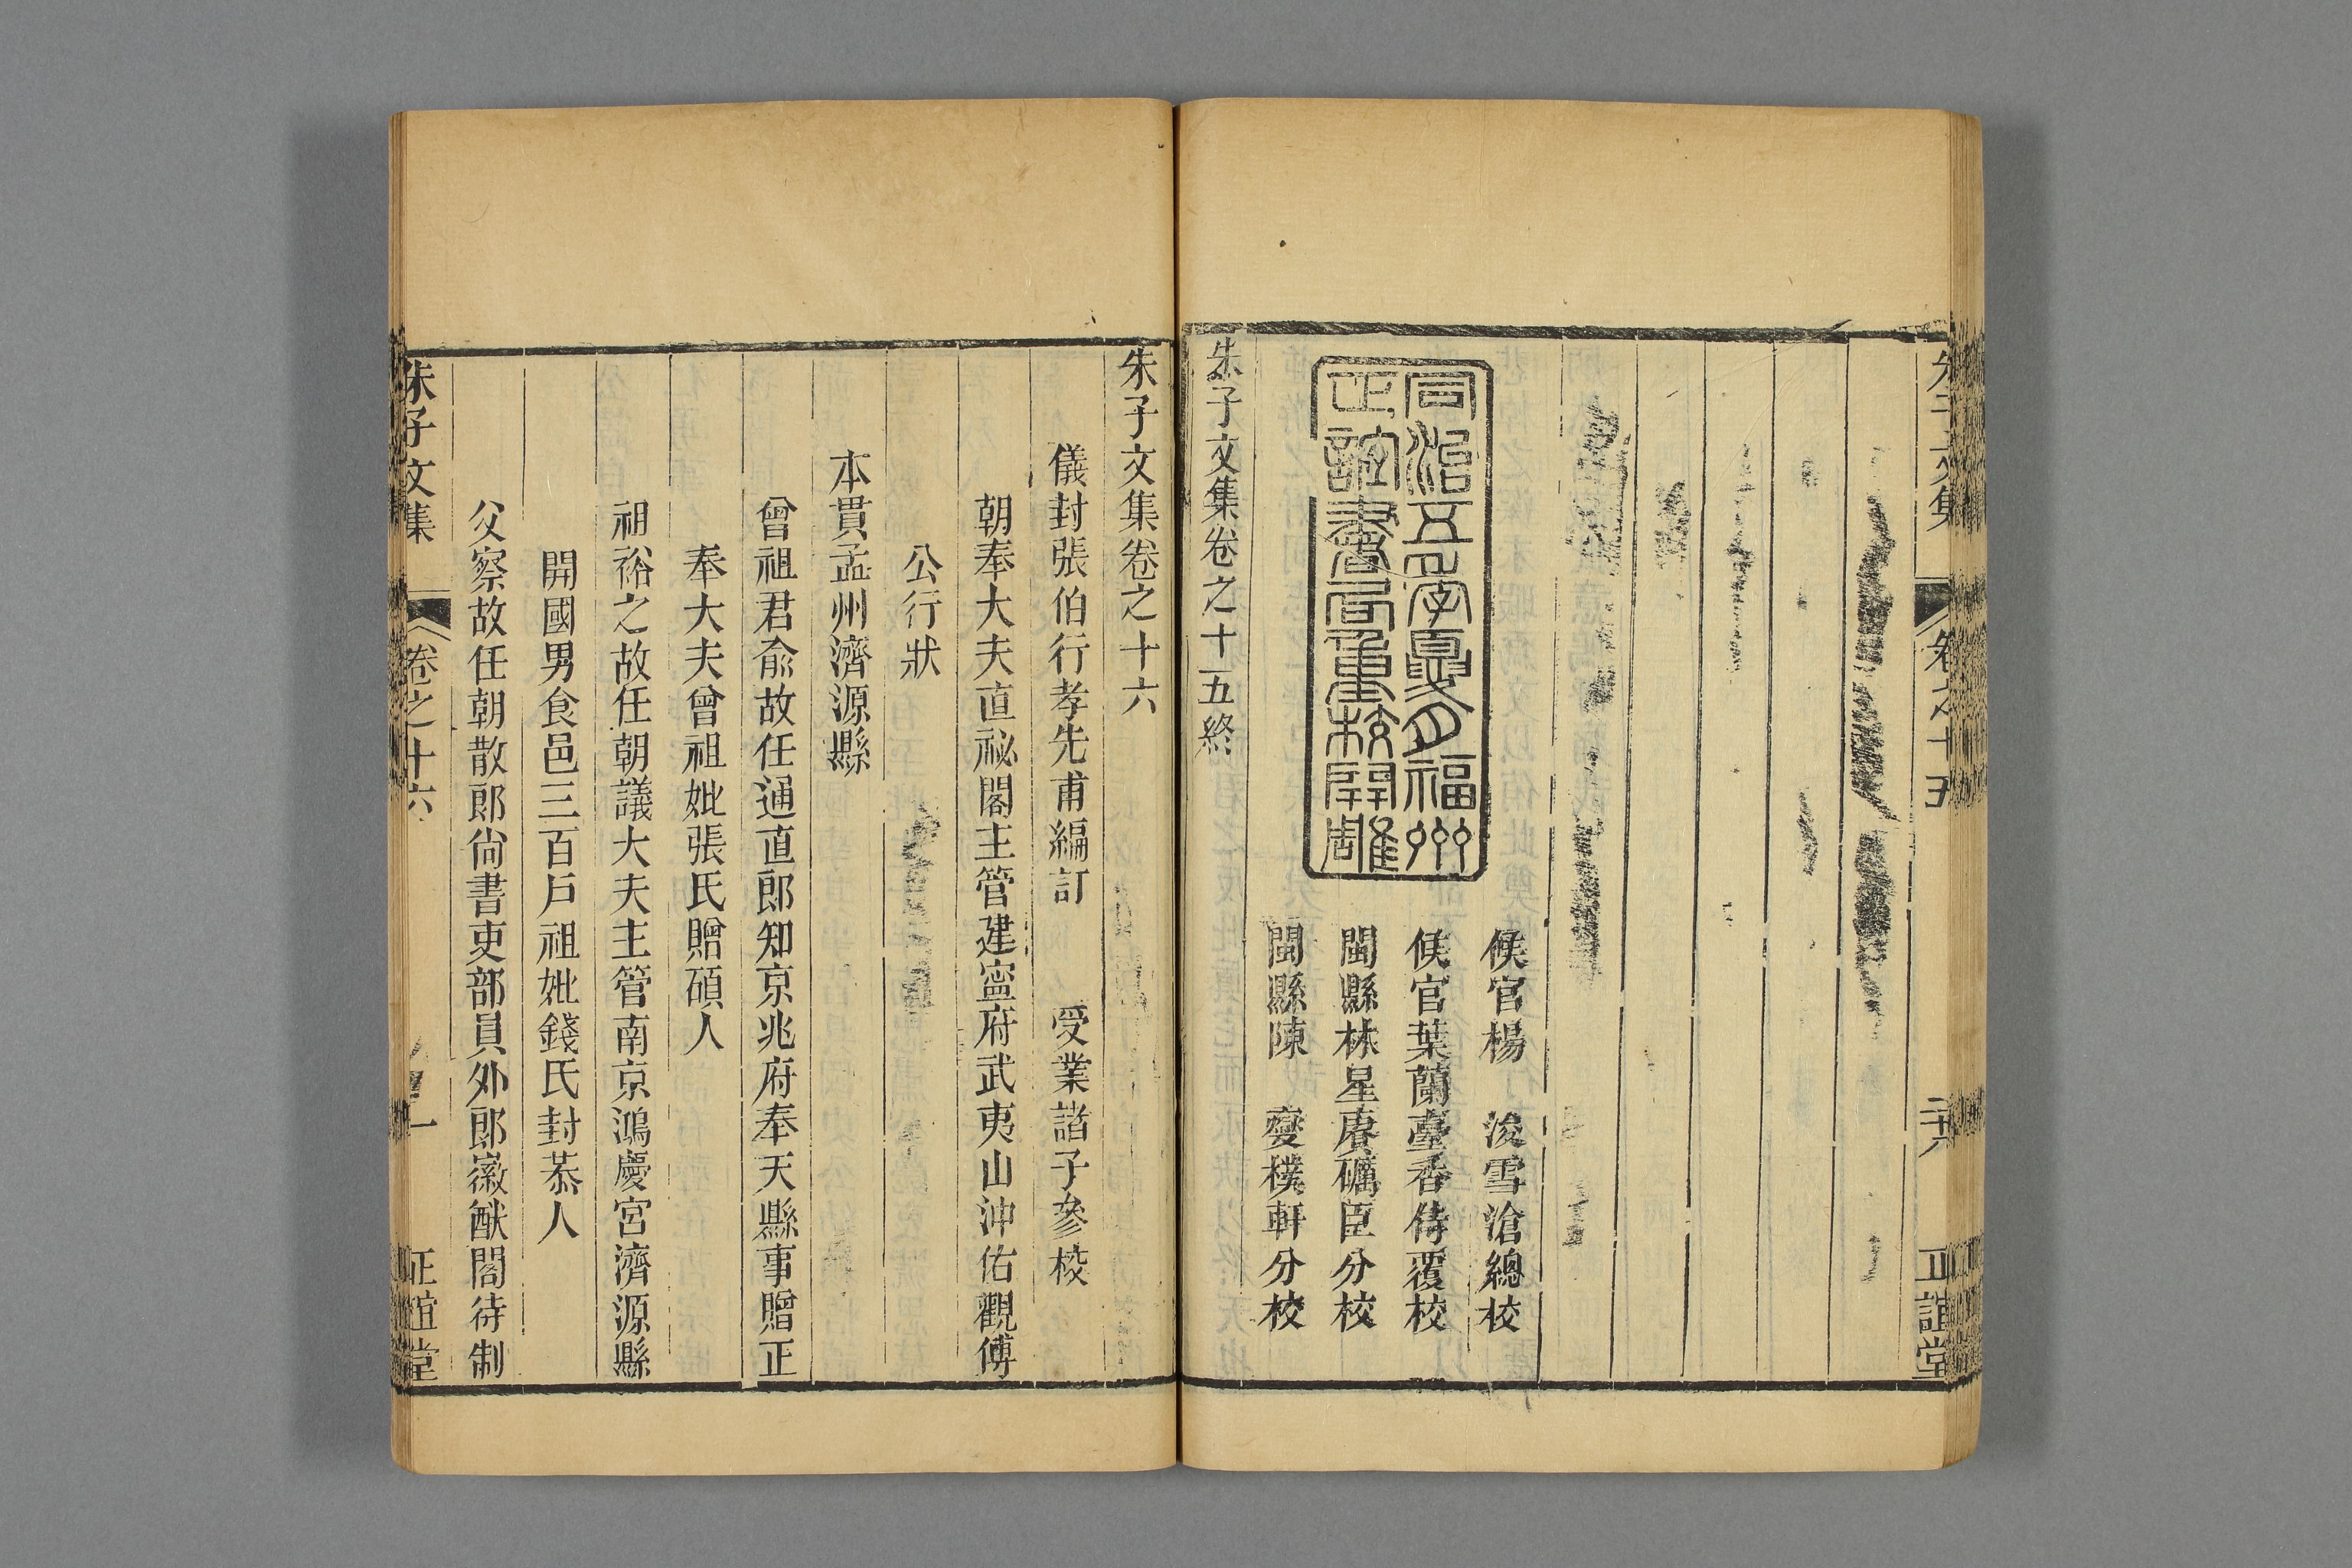 朱子文集
卷之十五
二十六
正誼堂
同治五年夏月福州
正誼書局重校開雕
候官楊 浚雪滄總校
候官葉蘭臺香侍覆校
閩縣林星賡礪臣分校
閩縣陳 燮樸軒分校
朱子文集卷之十五終
朱子文集卷之十六
儀封張伯行孝先甫編訂 受業諸子參校
朝奉大夫直祕閣主管建寧府武夷山沖佑觀傅
公行狀
本貫孟州濟源縣
曾祖君俞故任通直郎知京兆府奉天縣事贈正
奉大夫曾祖妣張氏贈碩人
祖裕之故任朝議大夫主管南京鴻慶宮濟源縣
開國男食邑三百戶祖妣錢氏封恭人
父察故任朝散郎尙書吏部員外郎徽猷閣待制
朱子文集
卷之十六
一
正誼堂